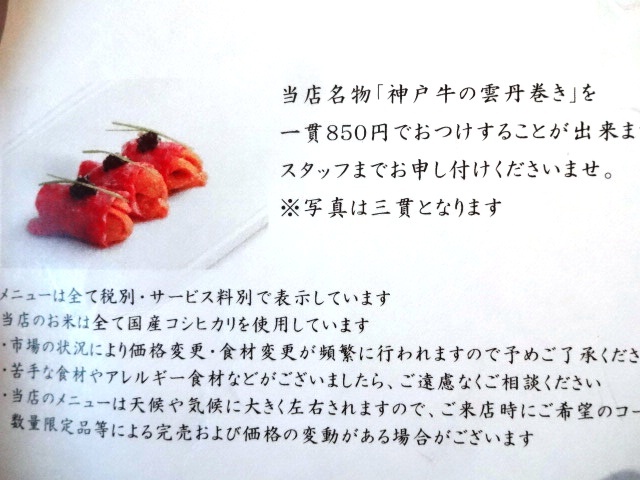 当店名物「神戸牛の雲丹巻き」を
一貫850円でおつけすることが出来ま
スタッフまでお申し付けくださいませ。
※写真は三貫となります
メニューは全て税別・サービス料別で表示しています
当店のお米は全て国産コシヒカリを使用しています
・市場の状況により価格変更・食材変更が頻繁に行われますので予めご了承くださ
・苦手な食材やアレルギー食材などがございましたら、ご遠慮なくご相談ください
・当店のメニューは天候や気候に大きく左右されますので、ご来店時にご希望のコー
数量限定品等による完売および価格の変動がある場合がございます